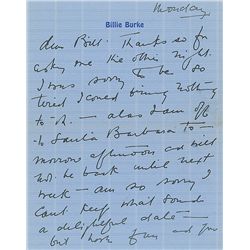 Monday
Billie Burke
dear Bill. Thanks so for
asking me the other night.
I was sorry to be so
tired I could bring nothing
to it. — alas I am off
to Santa Barbara to-
morrow afternoon and will
not be back until next
week — am so sorry I
can't keep what sounds
a delightful date —
but have fun and